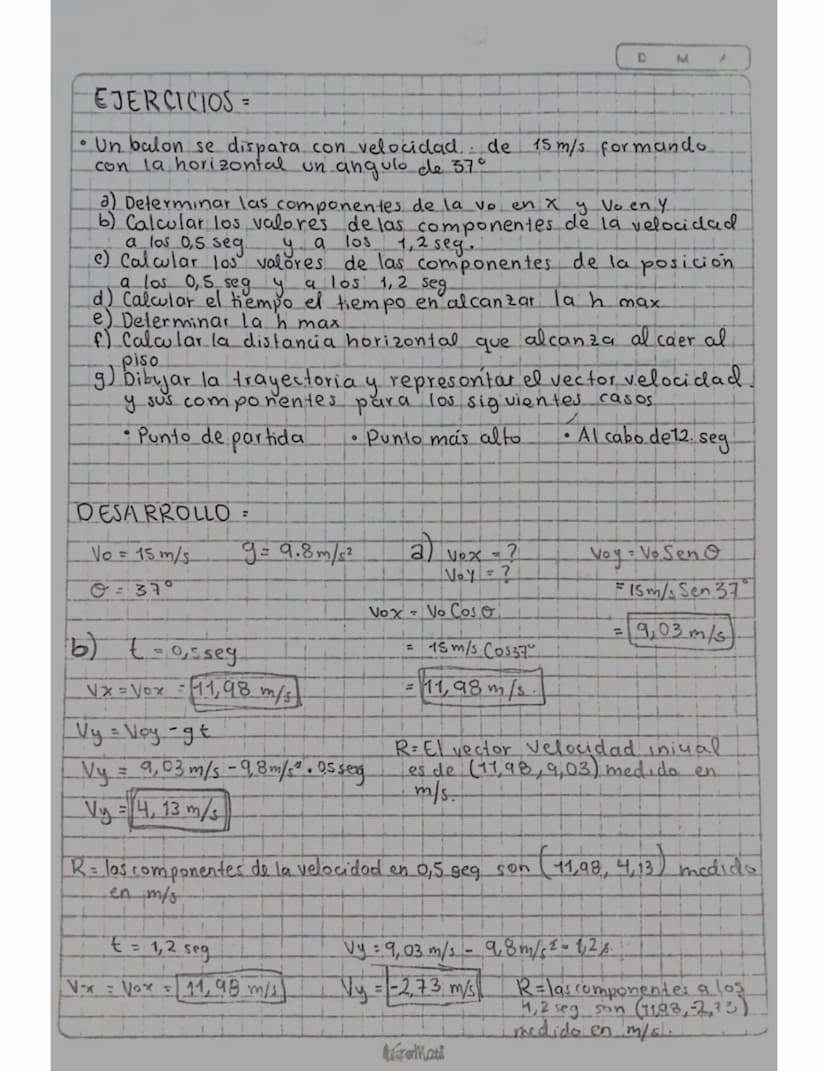 D M A
EJERCICIOS =
• Un balon se dispara con velocidad. de 15 m/s formando
con la horizontal un angulo de 37°
a) Determinar las componentes de la vo en x y Vo en Y
b) Calcular los valores de las componentes de la velocidad
a los 0,5 seg y a los 1,2 seg.
c) Calcular los valores de las componentes de la posición
a los 0,5 seg y a los 1,2 seg
d) Calcular el tiempo el tiempo en alcanzar la h max
e) Determinar la h max
f) Calcular la distancia horizontal que alcanza al caer al
piso
g) Dibujar la trayectoria y representar el vector velocidad.
y sus componentes para los siguientes casos
• Punto de partida • Punto más alto • Al cabo de 12. seg
DESARROLLO =
Vo = 15 m/s g = 9.8 m/s² a) Vox = ? Voy = Vo Sen θ
VoY = ?
θ = 37° = 15 m/s Sen 37°
Vox = Vo Cos θ
= 9,03 m/s
b) t = 0,5 seg = 15 m/s Cos37°
Vx = Vox = 11,98 m/s = 11,98 m/s.
Vy = Voy - gt
R = El vector velocidad inicial
Vy = 9,03 m/s - 9,8 m/s² • 0,5 seg es de (11,98, 9,03) medido en
m/s.
Vy = 4,13 m/s
R = las componentes de la velocidad en 0,5 seg son (11,98, 4,13) medido
en m/s
t = 1,2 seg Vy = 9,03 m/s - 9,8 m/s² • 1,2 s
Vx = Vox = 11,98 m/s Vy = -2,73 m/s R = las componentes a los
1,2 seg son (11,98, -2,73)
medido en m/s.